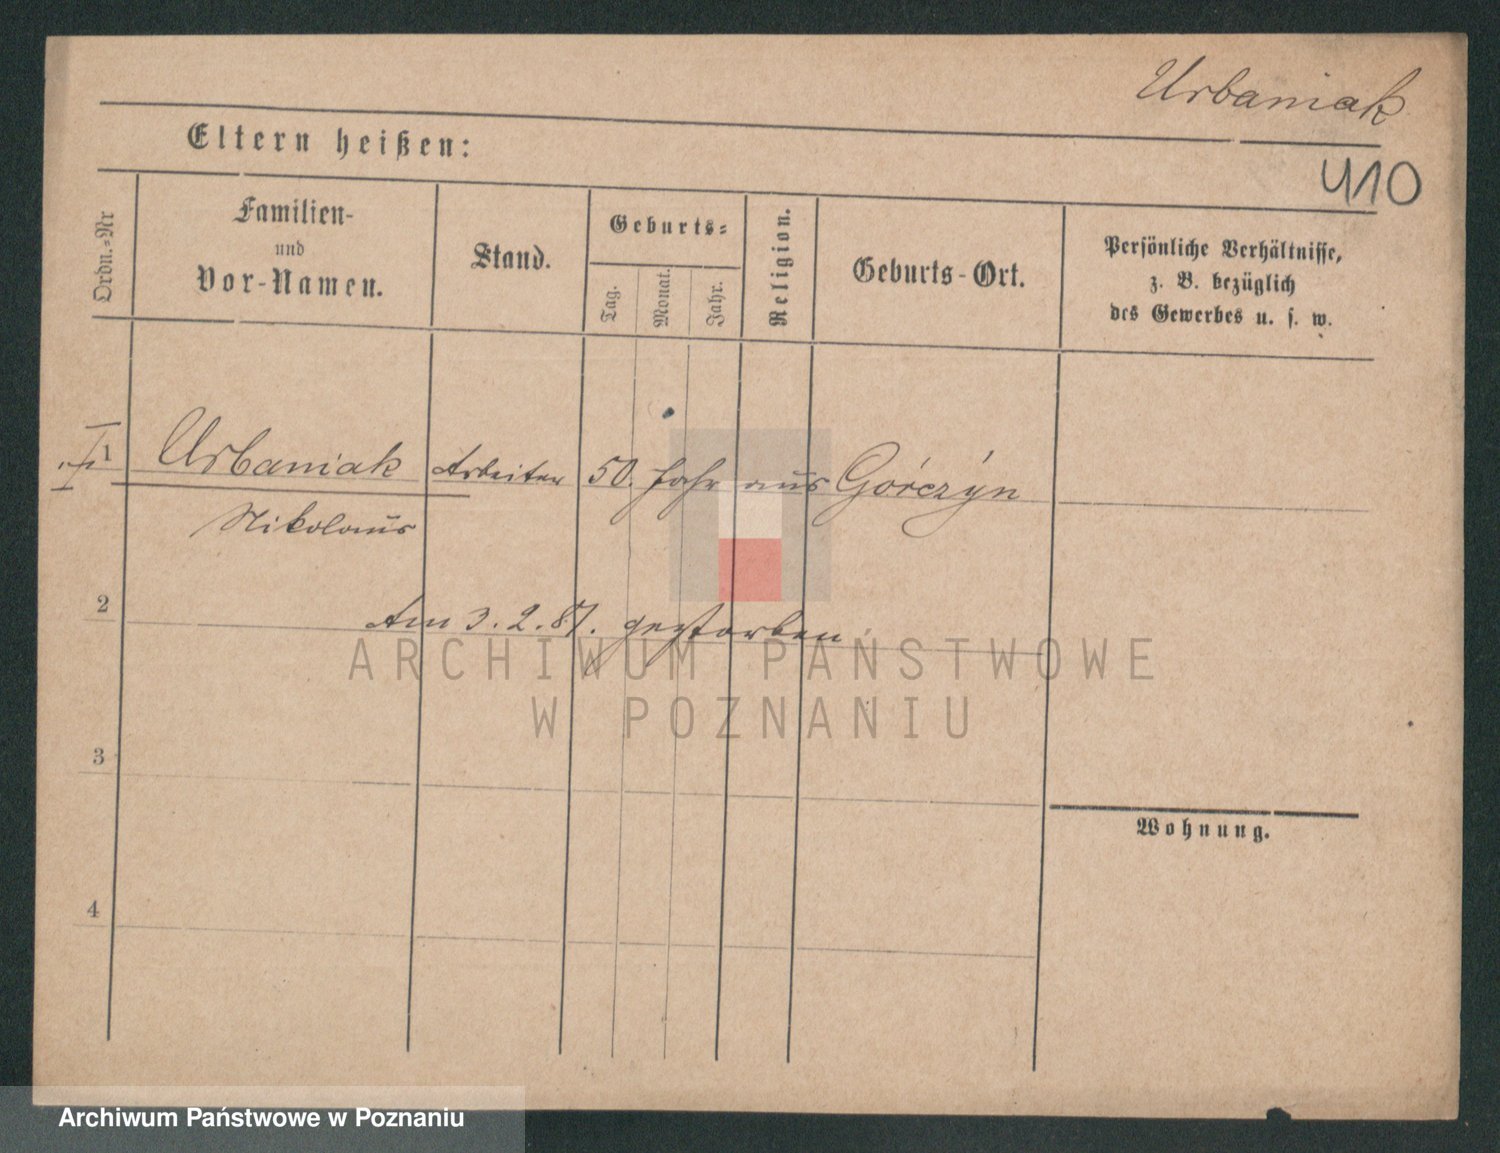 Urbaniak
410
Eltern heißen:
Ordn.=Nr
Familien-
und
Vor-Namen.
Stand.
Geburts=
Tag.
Monat.
Jahr.
Religion.
Geburts-Ort.
Persönliche Verhältnisse,
z. B. bezüglich
des Gewerbes u. s. w.
1 Urbaniak Arbeiter 50. Jahr aus Górczyn
Nikolaus
2
Am 3. 2. 87. gestorben
ARCHIWUM PAŃSTWOWE
W POZNANIU
3
Wohnung.
4
Archiwum Państwowe w Poznaniu